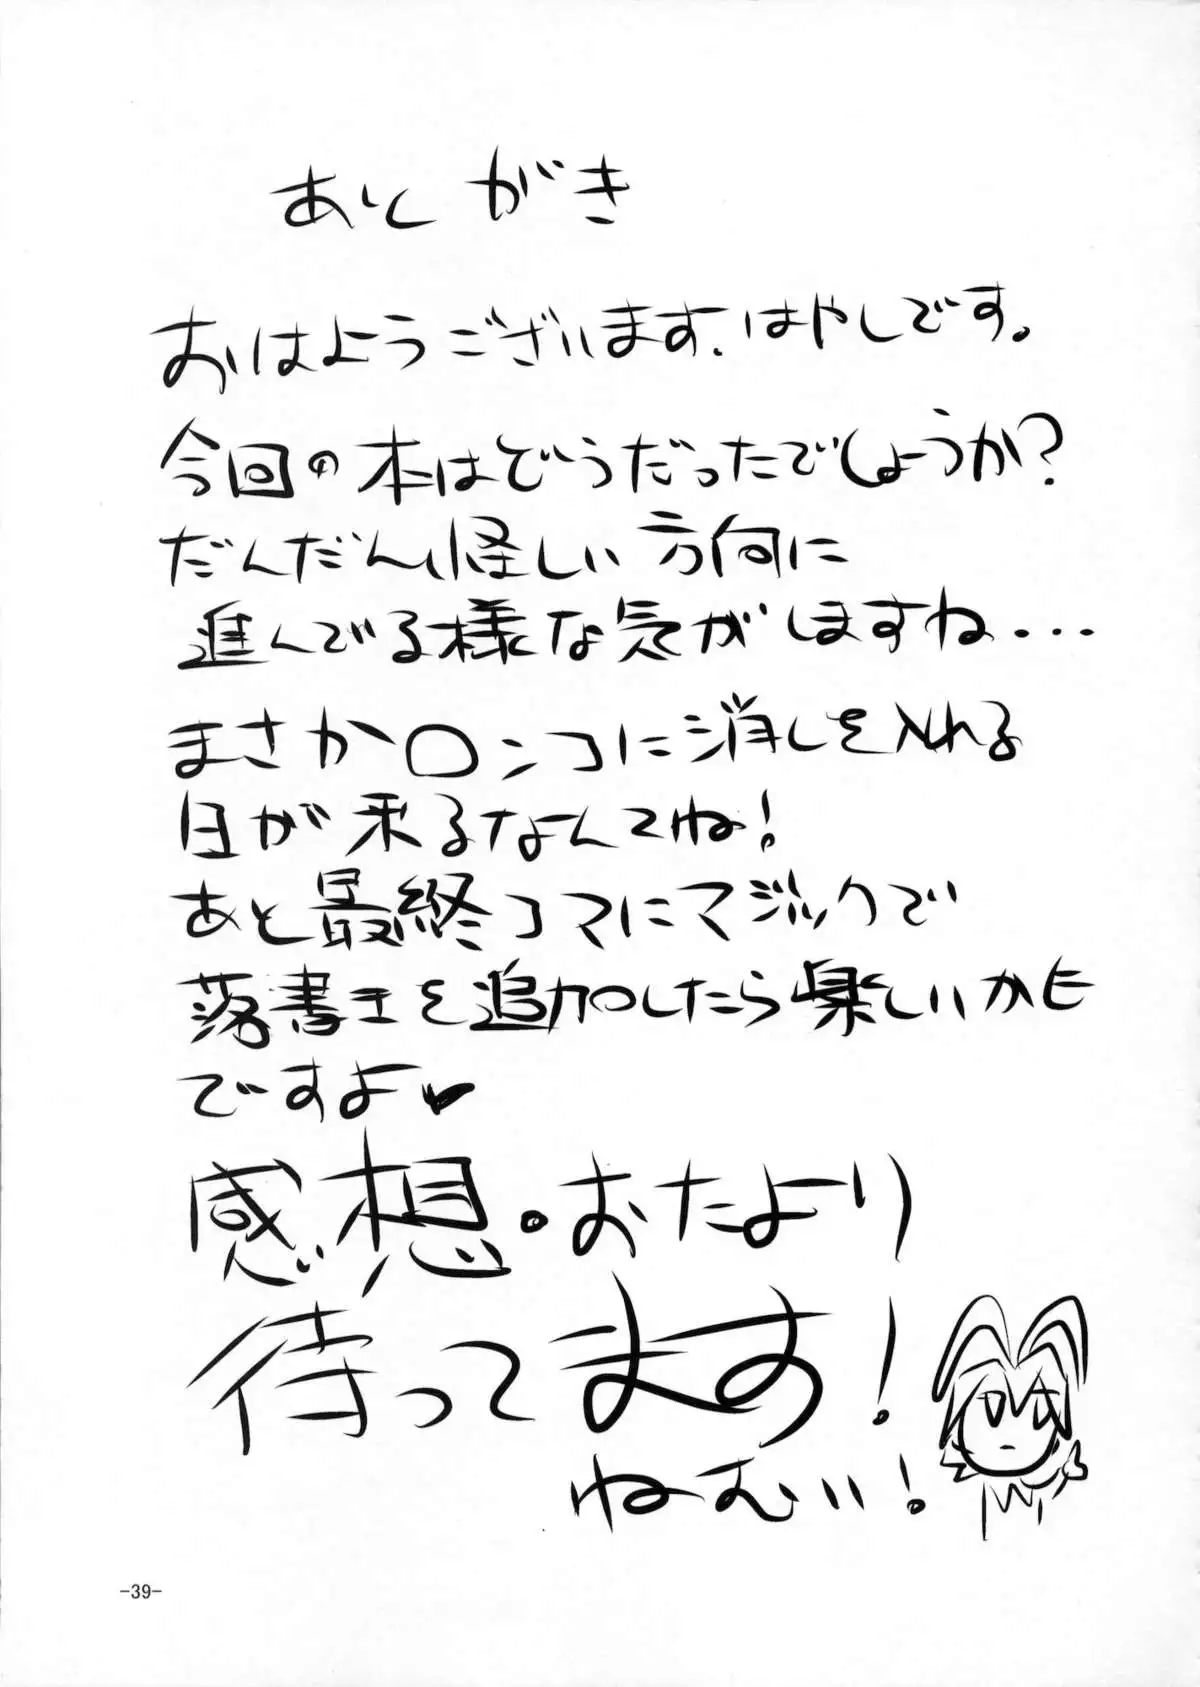 あとがき
おはようございます.はやしです。
今回の本はどうだったでしょうか?
だんだん怪しい方向に
進んでる様な気がしますね...
まさかロンコに消しを入れる
日が来るなんてね!
あと最終コマにマジックで
落書きを追加したら楽しいかも
ですよ♥
感想・おたより
待ってます!
ねむい!
-39-